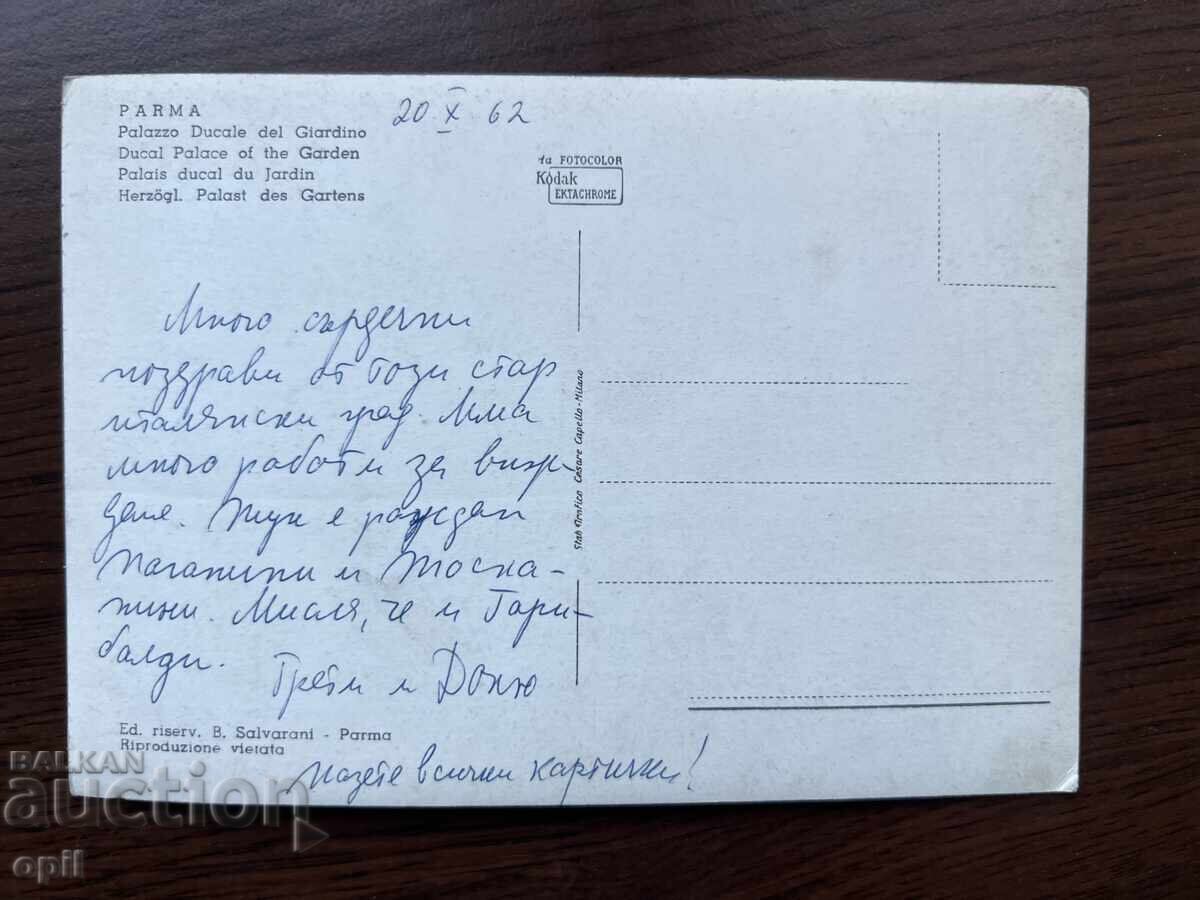 PARMA
Palazzo Ducale del Giardino
Ducal Palace of the Garden
Palais ducal du Jardin
Herzögl. Palast des Gartens
20 X 62
da FOTOCOLOR
Kodak
EKTACHROME
Много сърдечни
поздрави от този стар
италянски град. Има
много работи за виж-
дане. Тук е роден
Паганини и Тоска-
нини. Мисля, че и Гари-
балди.
Грети и Доню
Stab. Grafico Cesare Capello - Milano
Ed. riserv. B. Salvarani - Parma
Riproduzione vietata
пазете всички картички!
BALKAN
auction
opil